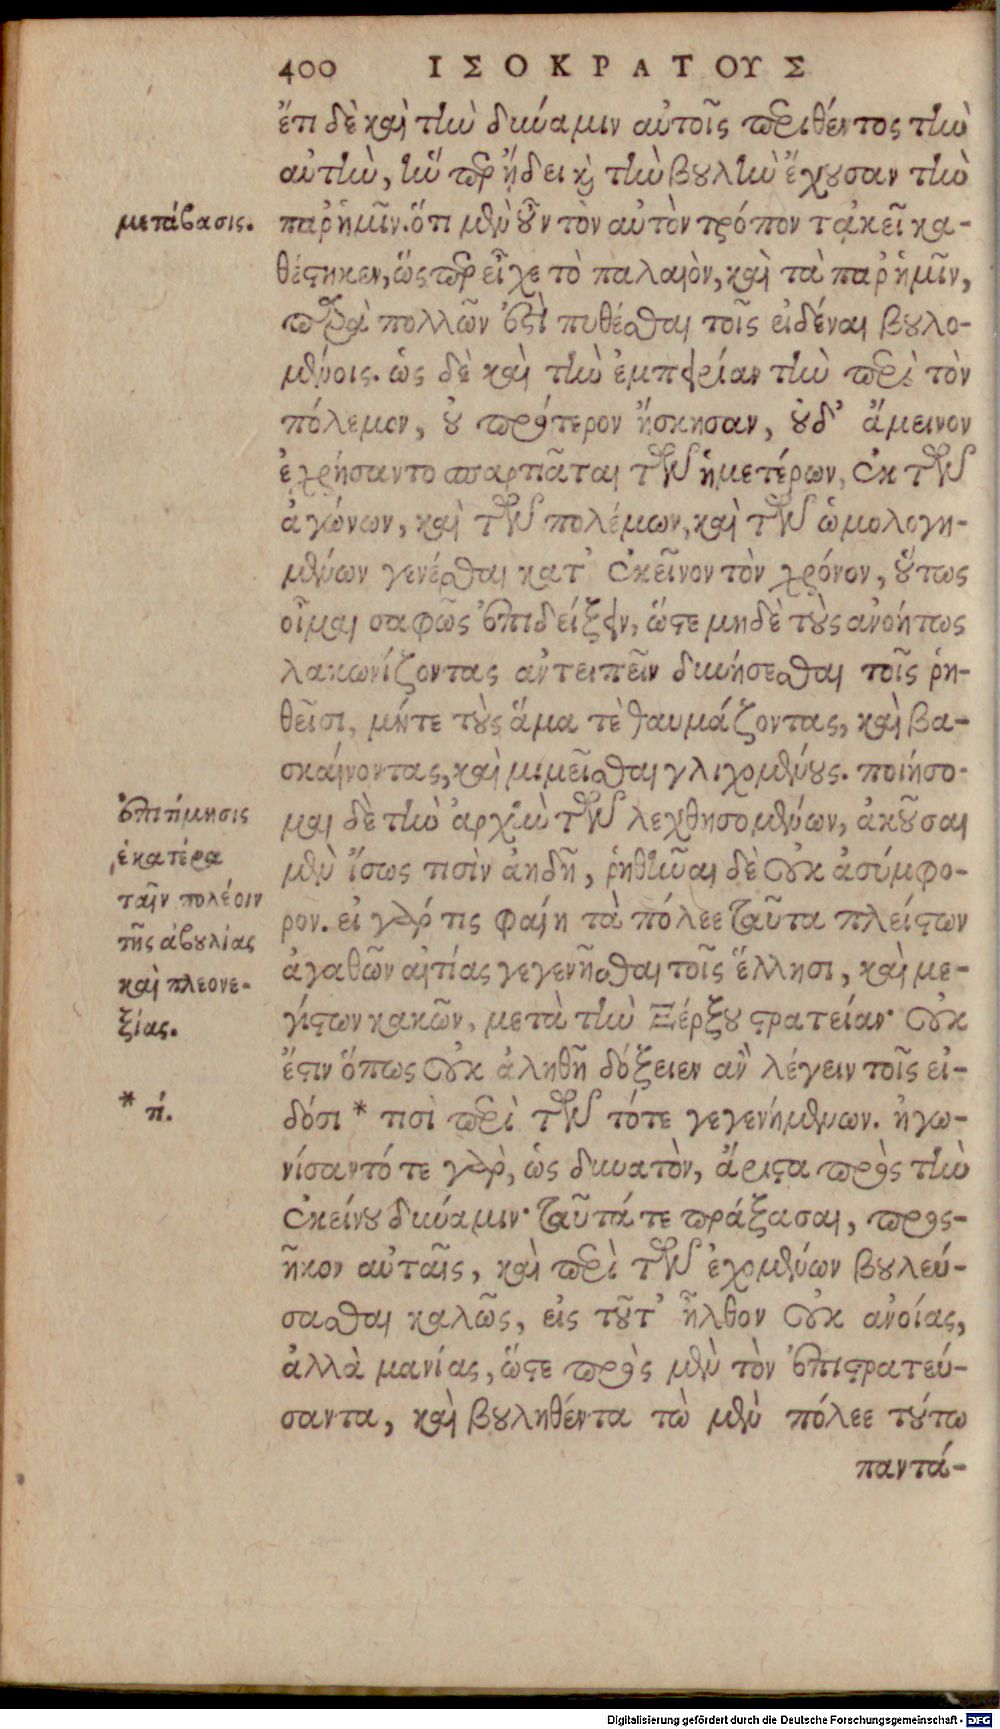 400 ΙΣΟΚΡΑΤΟΥΣ
ἔτι δὲ καὶ τὴν δύναμιν αὐτοῖς περιθέντος τὴν
αὐτὴν, ἣν περ ᾔδει καὶ τὴν βουλὴν ἔχουσαν τὴν
μετάβασις.
παρ' ἡμῖν. ὅτι μὲν οὖν τὸν αὐτὸν τρόπον τἀκεῖ κα-
θέστηκεν, ὥσπερ εἶχε τὸ παλαιὸν, καὶ τὰ παρ' ἡμῖν,
παρὰ πολλῶν ἔστι πυθέσθαι τοῖς εἰδέναι βουλο-
μένοις. ὡς δὲ καὶ τὴν ἐμπειρίαν τὴν περὶ τὸν
πόλεμον, οὐ πρότερον ἤσκησαν, οὐδ' ἄμεινον
ἐχρήσαντο Σπαρτιᾶται τῶν ἡμετέρων, ἐκ τῶν
ἀγώνων, καὶ τῶν πολέμων, καὶ τῶν ὡμολογη-
μένων γενέσθαι κατ' ἐκεῖνον τὸν χρόνον, οὕτως
οἶμαι σαφῶς ἐπιδείξειν, ὥστε μηδὲ τοὺς ἀνοήτως
λακωνίζοντας ἀντειπεῖν δυνήσεσθαι τοῖς ῥη-
θεῖσι, μήτε τοὺς ἅμα τε θαυμάζοντας, καὶ βα-
σκαίνοντας, καὶ μιμεῖσθαι γλιχομένους. ποιήσο-
ἐπιτίμησις
ἑκατέρα
ταῖν πολέοιν
τῆς ἀβουλίας
καὶ πλεονε-
ξίας.
μαι δὲ τὴν ἀρχὴν τῶν λεχθησομένων, ἀκοῦσαι
μὲν ἴσως τισὶν ἀηδῆ, ῥηθῆναι δὲ οὐκ ἀσύμφο-
ρον. εἰ γάρ τις φαίη τὰ πόλεε ταῦτα πλείστων
ἀγαθῶν αἰτίας γεγενῆσθαι τοῖς ἕλλησι, καὶ με-
γίστων κακῶν, μετὰ τὴν Ξέρξου στρατείαν· οὐκ
ἔστιν ὅπως οὐκ ἀληθῆ δόξειεν ἂν λέγειν τοῖς εἰ-
* τί.
δόσι * τισὶ περὶ τῶν τότε γεγενημένων. ἠγω-
νίσαντό τε γὰρ, ὡς δυνατὸν, ἄριστα πρὸς τὴν
ἐκείνου δύναμιν· ταῦτά τε πράξασαι, προς-
ῆκον αὐταῖς, καὶ περὶ τῶν ἐχομένων βουλεύ-
σασθαι καλῶς, εἰς τοῦτ' ἦλθον οὐκ ἀνοίας,
ἀλλὰ μανίας, ὥστε πρὸς μὲν τὸν ἐπιστρατεύ-
σαντα, καὶ βουληθέντα τὼ μὲν πόλεε τούτω
παντά-
Digitalisierung gefördert durch die Deutsche Forschungsgemeinschaft - DFG